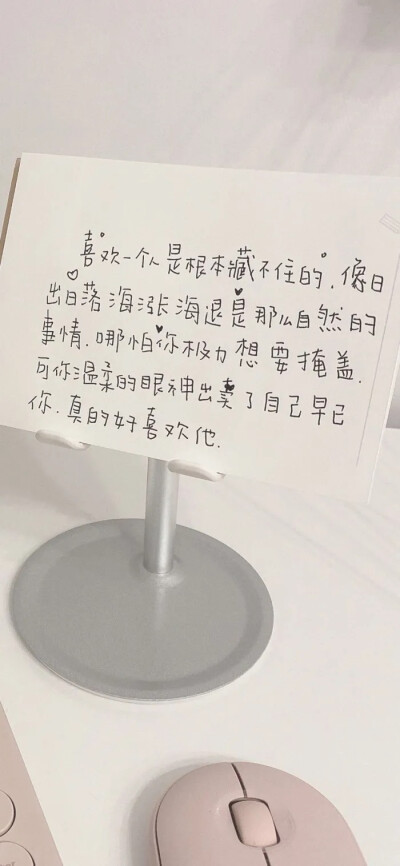 喜欢一个人是根本藏不住的.像日
出日落海涨海退是那么自然的
事情.哪怕你极力想要掩盖.
可你温柔的眼神出卖了自己早已
你.真的好喜欢他.